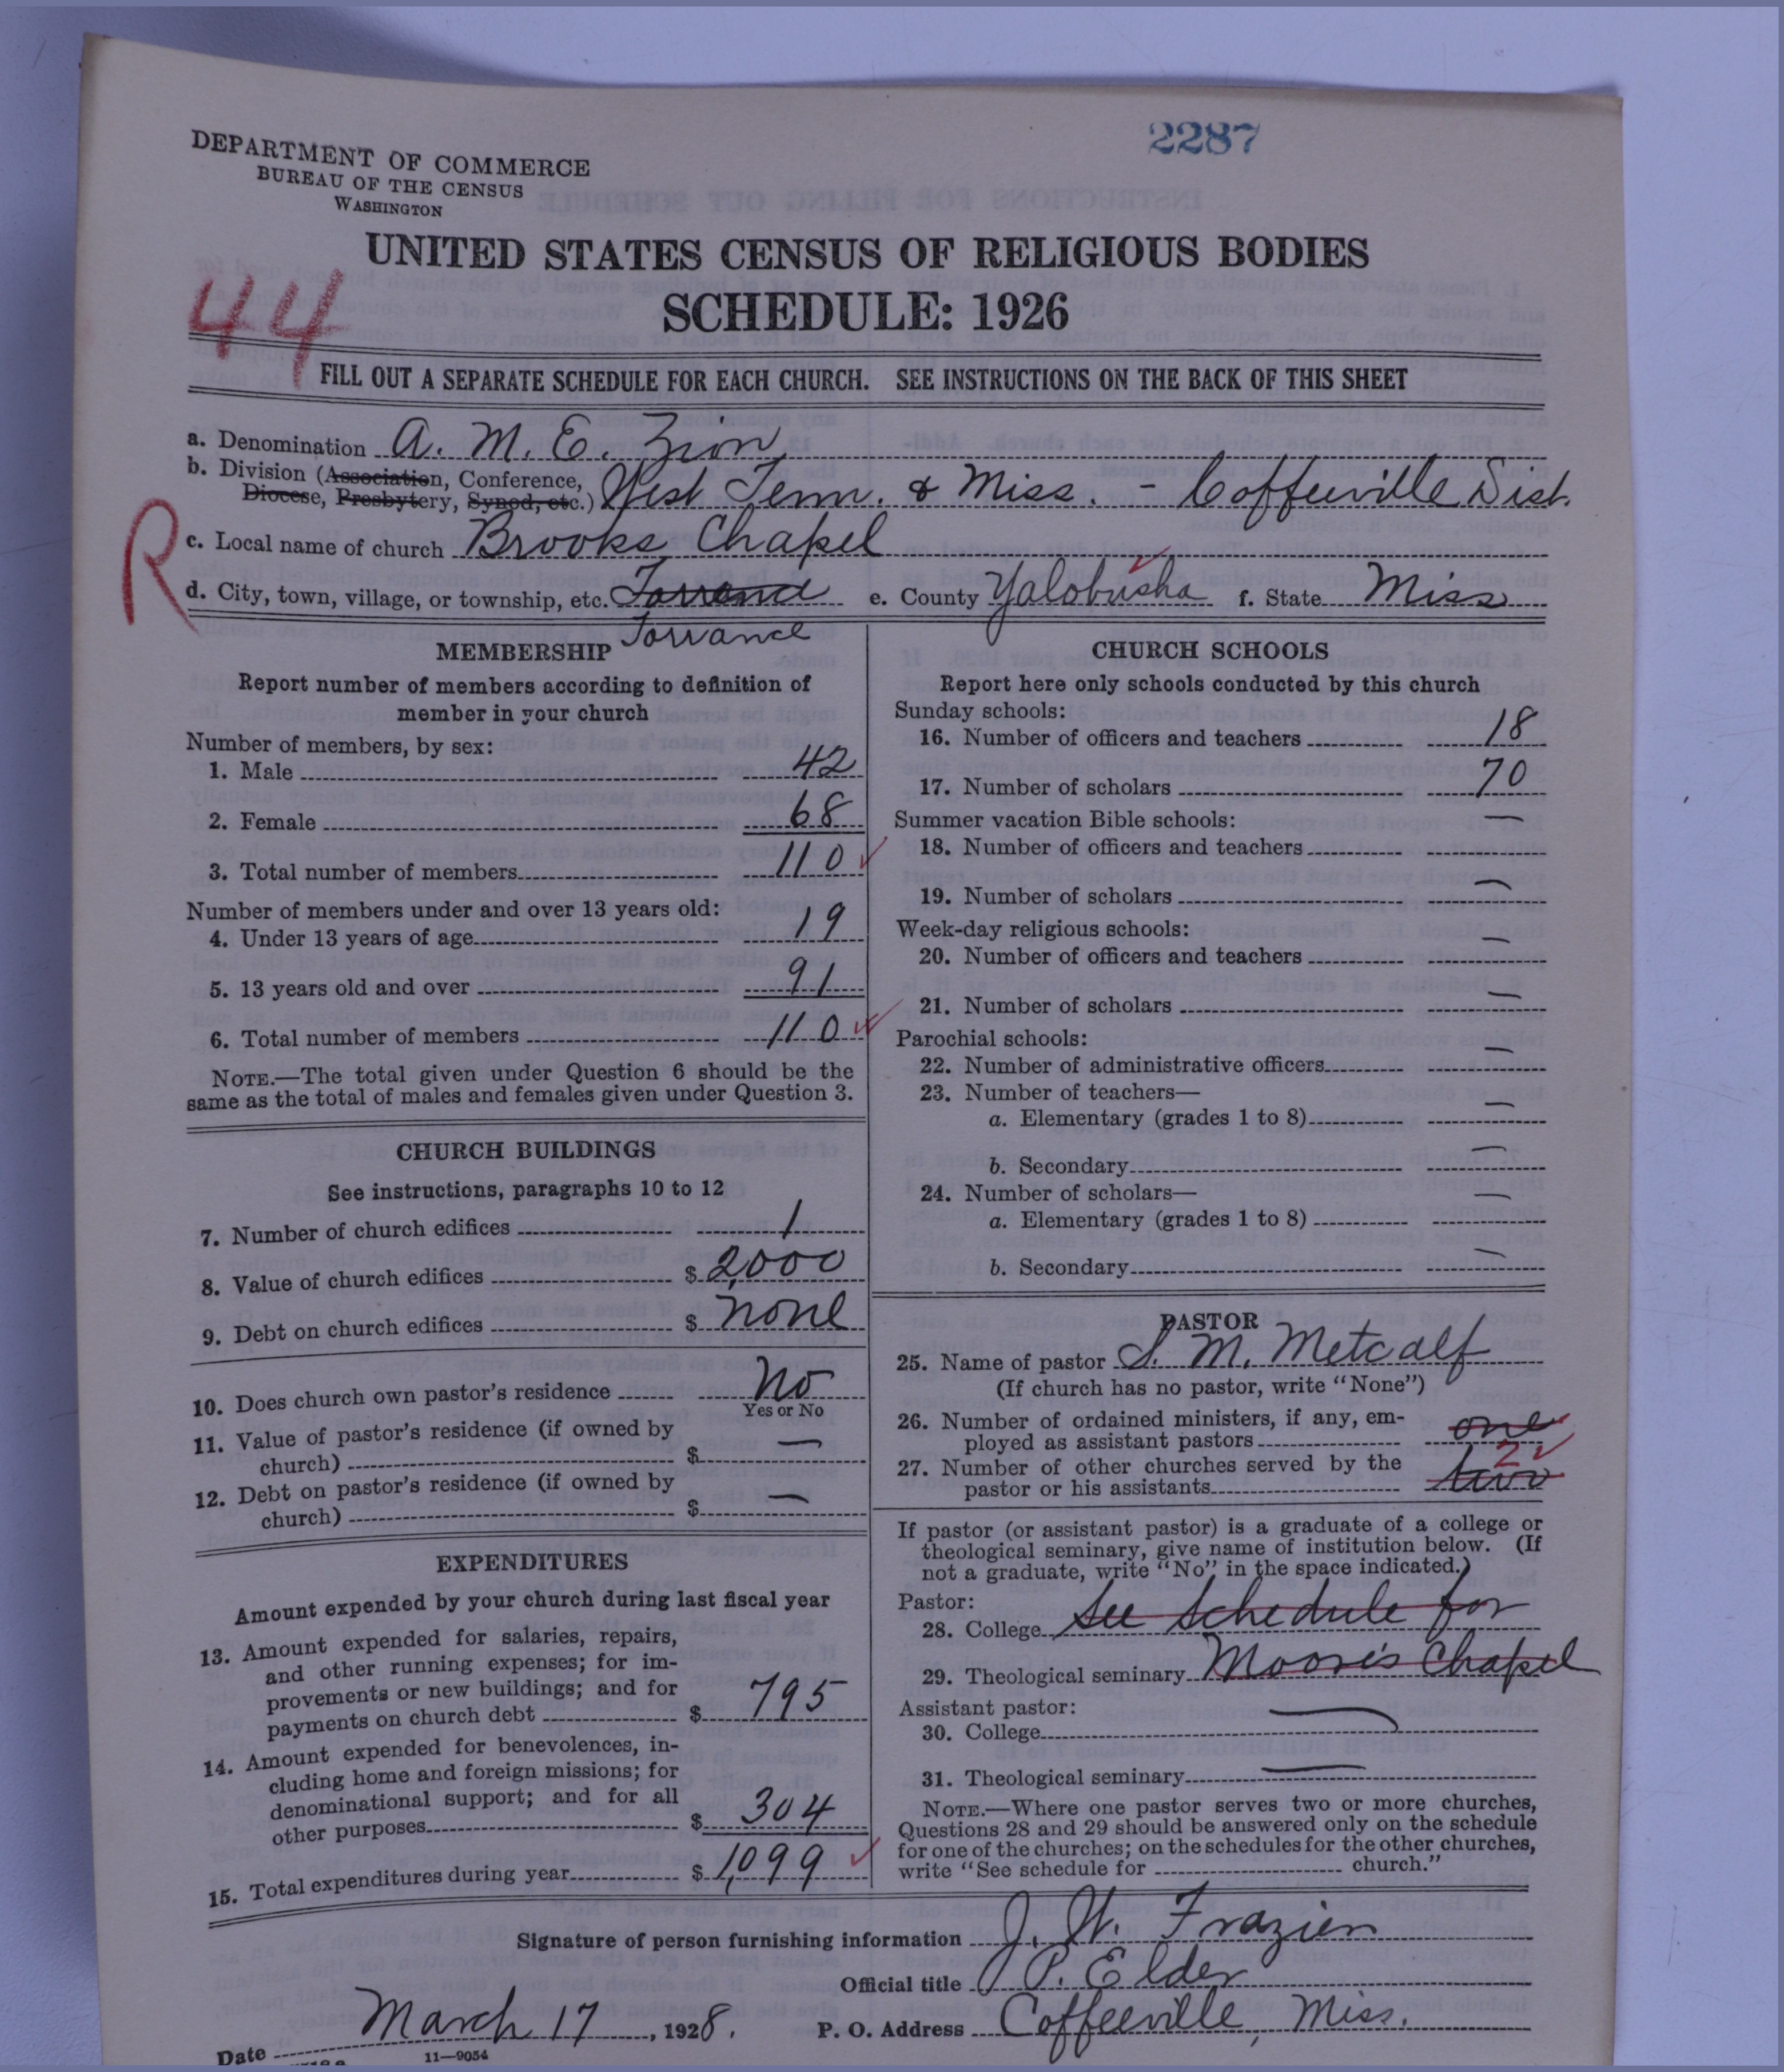 2287
DEPARTMENT OF COMMERCE
BUREAU OF THE CENSUS
WASHINGTON
UNITED STATES CENSUS OF RELIGIOUS BODIES
SCHEDULE: 1926
44
FILL OUT A SEPARATE SCHEDULE FOR EACH CHURCH. SEE INSTRUCTIONS ON THE BACK OF THIS SHEET
a. Denomination A. M. E. Zion
b. Division (Association, Conference,
Diocese, Presbytery, Synod, etc.) West Tenn. & Miss. - Coffeeville Dist.
R
c. Local name of church Brooks Chapel
d. City, town, village, or township, etc. Torrance e. County Yalobusha f. State Miss
Torrance
MEMBERSHIP
Report number of members according to definition of
member in your church
Number of members, by sex:
1. Male 42
2. Female 68
3. Total number of members 110
Number of members under and over 13 years old:
4. Under 13 years of age 19
5. 13 years old and over 91
6. Total number of members 110
NOTE.—The total given under Question 6 should be the
same as the total of males and females given under Question 3.
CHURCH BUILDINGS
See instructions, paragraphs 10 to 12
7. Number of church edifices 1
8. Value of church edifices $ 2,000
9. Debt on church edifices $ none
10. Does church own pastor's residence No
Yes or No
11. Value of pastor's residence (if owned by
church) $ —
12. Debt on pastor's residence (if owned by
church) $ —
EXPENDITURES
Amount expended by your church during last fiscal year
13. Amount expended for salaries, repairs,
and other running expenses; for im-
provements or new buildings; and for
payments on church debt $ 795
14. Amount expended for benevolences, in-
cluding home and foreign missions; for
denominational support; and for all
other purposes $ 304
15. Total expenditures during year $ 1,099
CHURCH SCHOOLS
Report here only schools conducted by this church
Sunday schools:
16. Number of officers and teachers 18
17. Number of scholars 70
Summer vacation Bible schools:
18. Number of officers and teachers —
19. Number of scholars —
Week-day religious schools:
20. Number of officers and teachers —
21. Number of scholars —
Parochial schools:
22. Number of administrative officers —
23. Number of teachers—
a. Elementary (grades 1 to 8) —
b. Secondary —
24. Number of scholars—
a. Elementary (grades 1 to 8) —
b. Secondary —
PASTOR
25. Name of pastor S. M. Metcalf
(If church has no pastor, write "None")
26. Number of ordained ministers, if any, em-
ployed as assistant pastors one
27. Number of other churches served by the 2
pastor or his assistants two
If pastor (or assistant pastor) is a graduate of a college or
theological seminary, give name of institution below. (If
not a graduate, write "No" in the space indicated.)
Pastor:
28. College See schedule for
29. Theological seminary Moore's Chapel
Assistant pastor:
30. College —
31. Theological seminary —
NOTE.—Where one pastor serves two or more churches,
Questions 28 and 29 should be answered only on the schedule
for one of the churches; on the schedules for the other churches,
write "See schedule for church."
Signature of person furnishing information J. W. Frazier
Official title P. Elder
Date March 17, 1928. P. O. Address Coffeeville, Miss.
11—9054